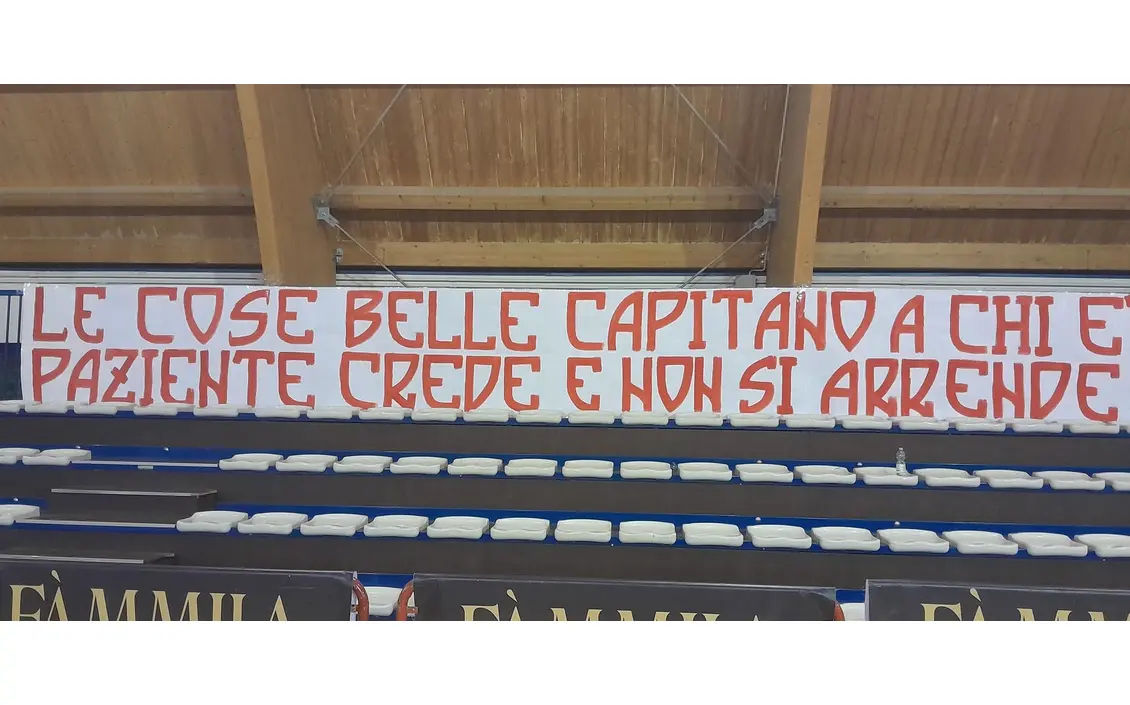 LE COSE BELLE CAPITANO A CHI E'
PAZIENTE CREDE E NON SI ARRENDE
FÀMMILA
FÀMMILA
FÀMM